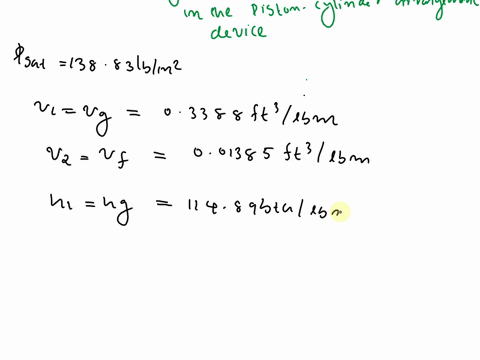 in the Piston-cylinder
device
Psat = 138.83lb/in²
v₁ = vg = 0.3388 ft³/lbm
v₂ = vf = 0.01385 ft³/lbm
h₁ = hg = 114.89btu/lbm